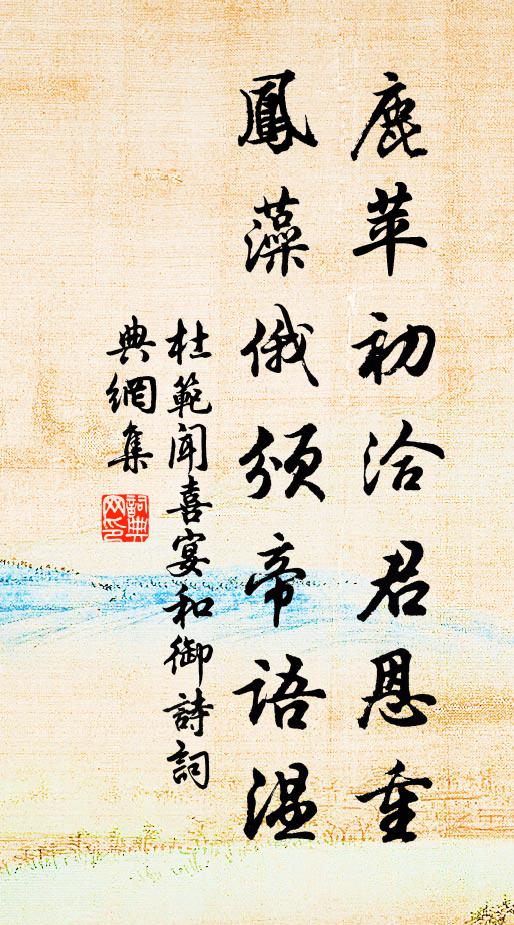 鹿苹初洽君恩重
鳳藻俄頒帝語温
杜範聞喜宴和御詩詞
典網集
詞典
网印